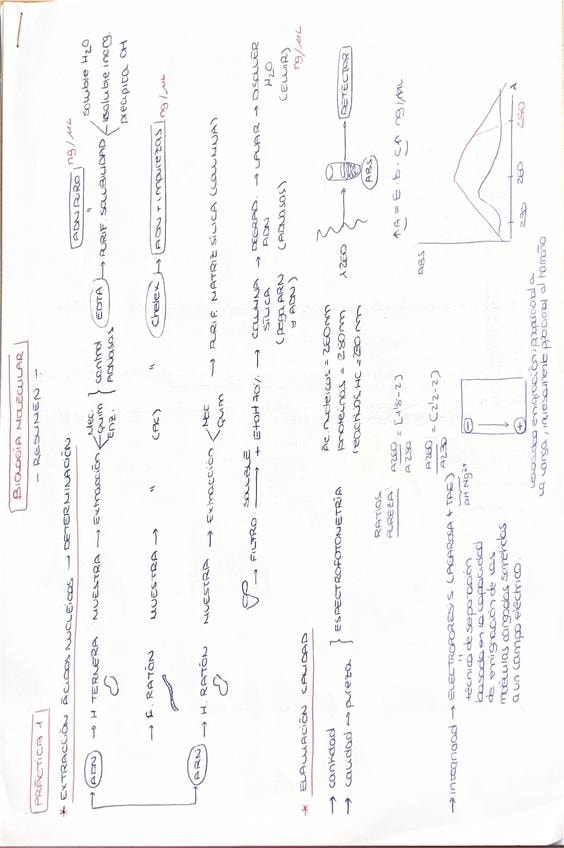 BIOLOGÍA MOLECULAR
- RESUMEN -
PRÁCTICA 1
* EXTRACCIÓN ÁCIDOS NUCLEICOS → DETERMINACIÓN
ADN → H TERNERA MUESTRA → Extracción < Mec. Quim Enz. } control ADNasas → EDTA → PURIF. SOLUBILIDAD < soluble H2O insoluble inorg. precipita OH
ADN PURO ng/µL
→ R. RATÓN MUESTRA → " (PK) " Chelex → ADN + impurezas ng/µL
ARN → H. RATÓN MUESTRA → Extracción < Mec Quim → PURIF. MATRIZ SILICA (COLUMNA)
→ FILTRO SOLUBLE → + EtOH 70% → COLUMNA SÍLICA (pega ARN y ADN) → DEGRAD. ADN (ADNasas) → LAVAR → DISOLVER H2O (ELUIR) ng/µL
* EVALUACIÓN CALIDAD
→ cantidad
→ calidad → pureza } ESPECTROFOTOMETRÍA
Ác. nucleicos = 260nm
proteínas = 280nm
reactivos, HC = 230nm
λ260 ABS. DETECTOR
RATIOS PUREZA:
A260/A280 = [1'8-2]
A260/A230 = [2'2-2]
↑A = E. b. C↑ ng/µL
ABS
230 260 280 λ
→ integridad → ELECTROFORESIS (AGAROSA + TAE)
pH Mg2+
técnica de separación
basada en la capacidad
de emigración de las
moléculas cargadas sometidas
a un campo eléctrico.
- → +
velocidad emigración: proporcional a
la carga, inversamente proporcional al tamaño